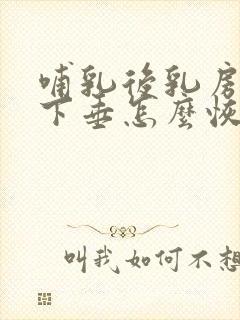 哺乳後乳房
下垂怎麼恢
叫我如何不想